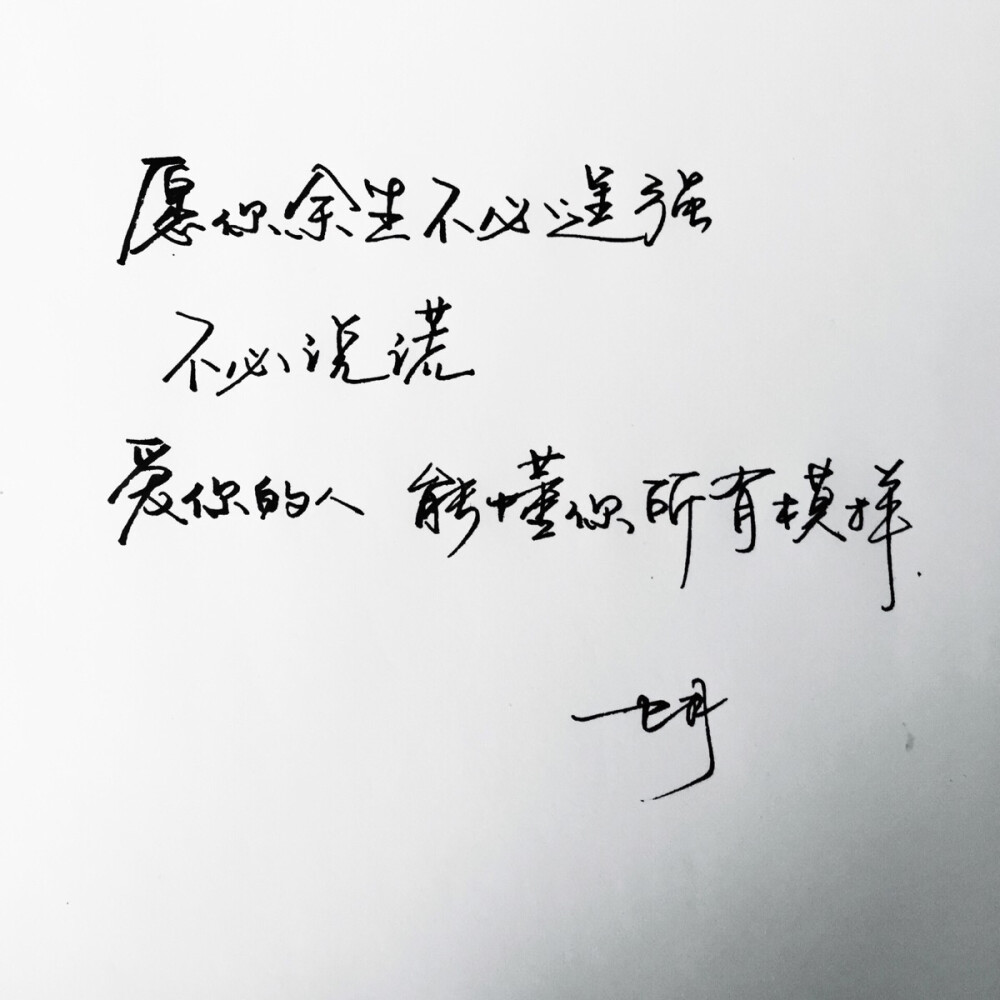 愿你余生不必逞强
不必说谎
爱你的人 能懂你所有模样.